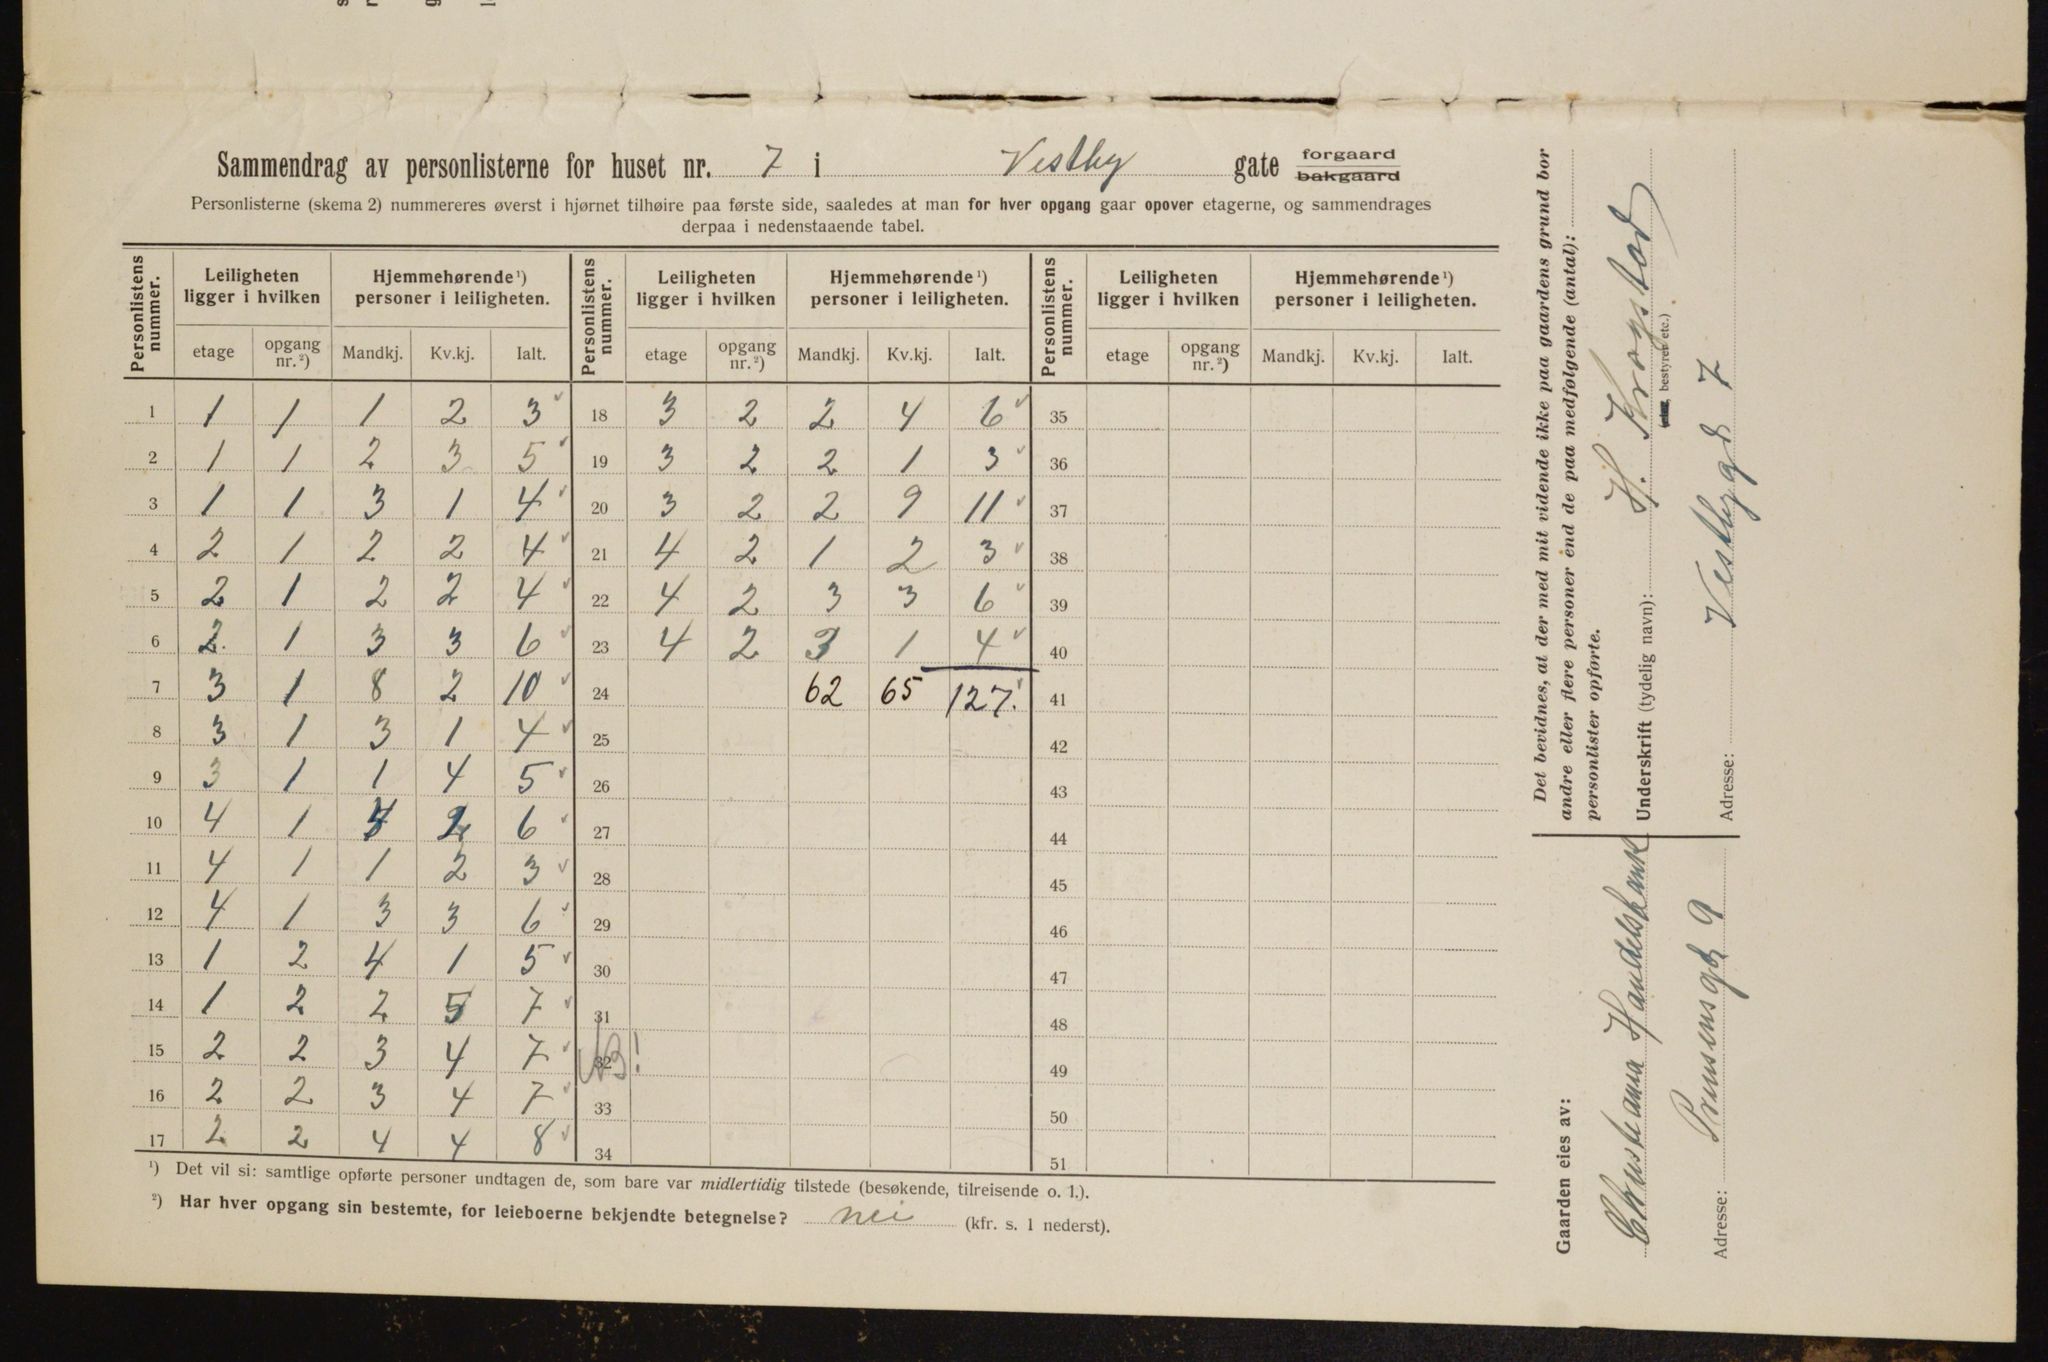 Sammendrag av personlisterne for huset nr. 7 i Vestby gate forgaard ~~bakgaard~~
Personlisterne (skema 2) nummereres øverst i hjørnet tilhøire paa første side, saaledes at man for hver opgang gaar opover etagerne, og sammendrages
derpaa i nedenstaaende tabel.
Personlistens nummer. Leiligheten ligger i hvilken Hjemmehørende ¹) personer i leiligheten. Personlistens nummer. Leiligheten ligger i hvilken Hjemmehørende ¹) personer i leiligheten. Personlistens nummer. Leiligheten ligger i hvilken Hjemmehørende ¹) personer i leiligheten.
etage opgang nr. ²) Mandkj. Kv.kj. Ialt. etage opgang nr. ²) Mandkj. Kv.kj. Ialt. etage opgang nr. ²) Mandkj. Kv.kj. Ialt.
1 1 1 1 2 3 18 3 2 2 4 6 35
2 1 1 2 3 5 19 3 2 2 1 3 36
3 1 1 3 1 4 20 3 2 2 9 11 37
4 2 1 2 2 4 21 4 2 1 2 3 38
5 2 1 2 2 4 22 4 2 3 3 6 39
6 2 1 3 3 6 23 4 2 3 1 4 40
7 3 1 8 2 10 24 62 65 127. 41
8 3 1 3 1 4 25 42
9 3 1 1 4 5 26 43
10 4 1 4 2 6 27 44
11 4 1 1 2 3 28 45
12 4 1 3 3 6 29 46
13 1 2 4 1 5 30 47
14 1 2 2 5 7 31 48
15 2 2 3 4 7 32 NB! 49
16 2 2 3 4 7 33 50
17 2 2 4 4 8 34 51
¹) Det vil si: samtlige opførte personer undtagen de, som bare var midlertidig tilstede (besøkende, tilreisende o. l.).
²) Har hver opgang sin bestemte, for leieboerne bekjendte betegnelse? nei (kfr. s. 1 nederst).
Det bevidnes, at der med mit vidende ikke paa gaardens grund bor
andre eller flere personer end de paa medfølgende (antal):
personlister opførte.
Underskrift (tydelig navn): H. Krogstad
bestyrer etc.)
Adresse: Vestbygd 7
Gaarden eies av:
Christiania Handelsbank
Adresse: Prinsensgt 9